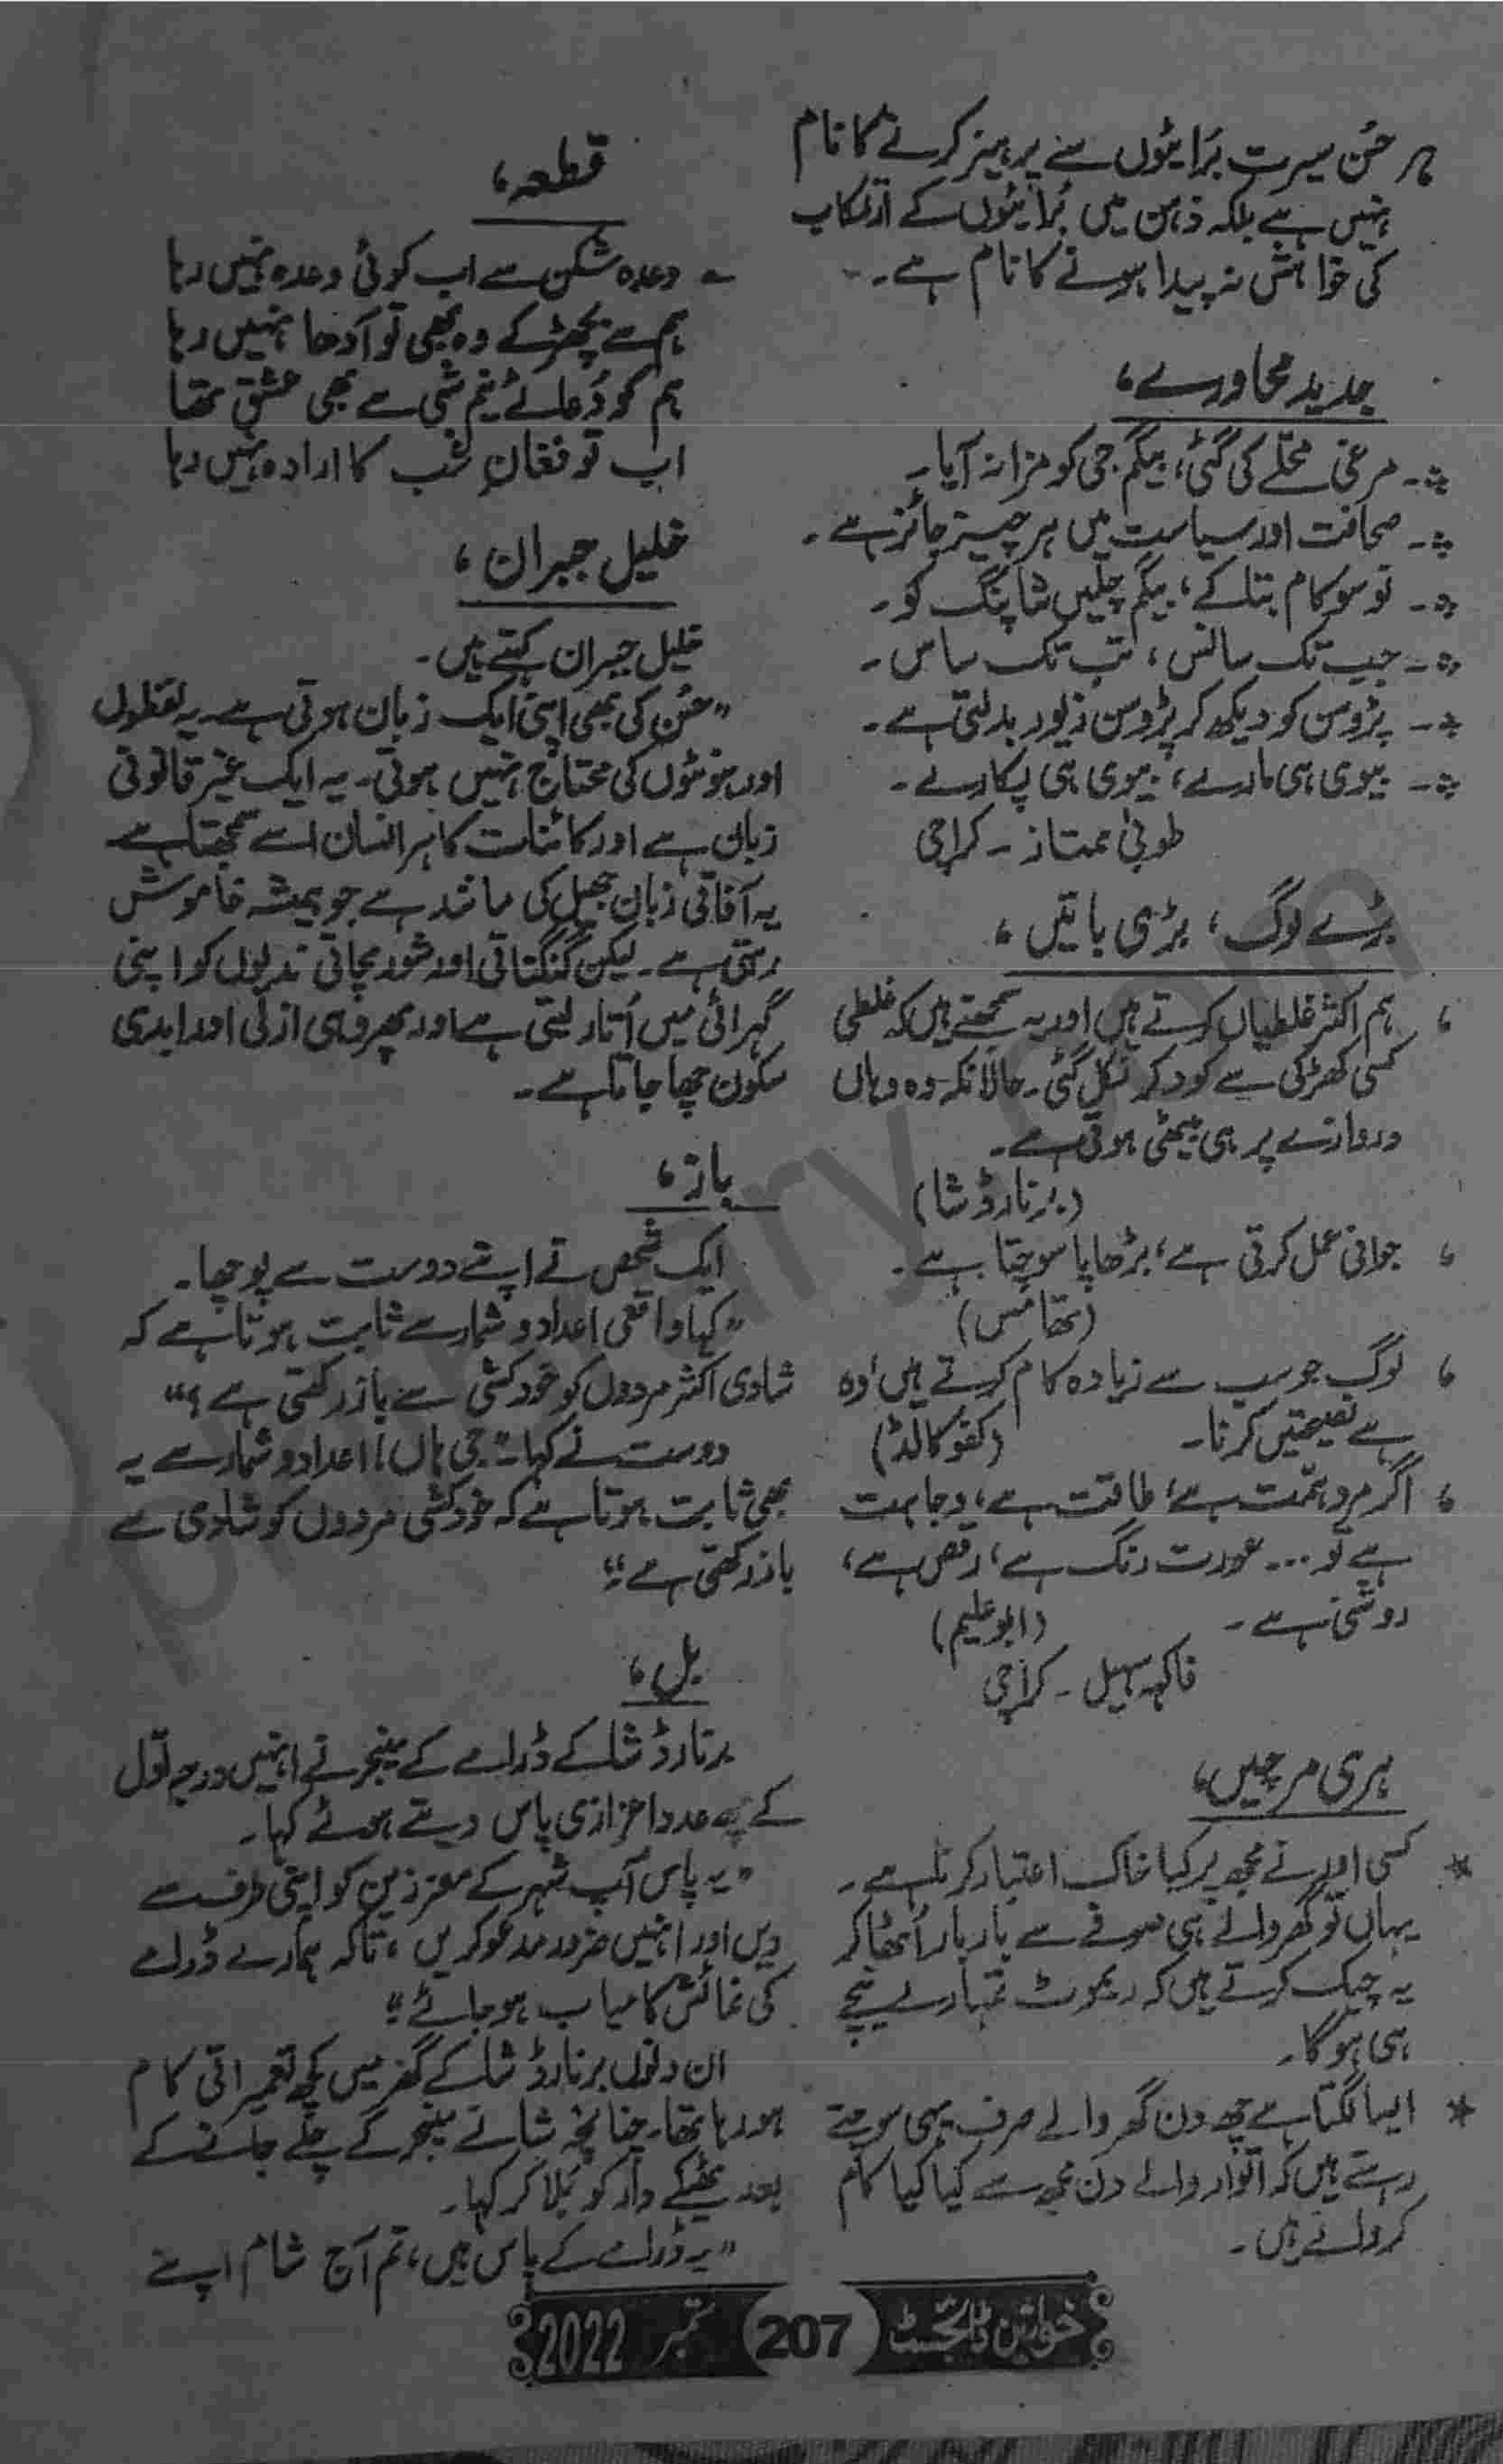 حُسن سیرت بُرائیوں سے پرہیز کرنے کا نام
نہیں ہے بلکہ ذہن میں بُرائیوں کے ارتکاب
کی خواہش نہ پیدا ہونے کا نام ہے۔
جدید محاورے،
مرغی محلّے کی گئی، بیگم جی کو مزا نہ آیا۔
صحافت اور سیاست میں ہر چیز جائز ہے۔
تو سو کام بتا کے، بیگم چلیں شاپنگ کو۔
جب تک سانس، تب تک ساس۔
پڑوسن کو دیکھ کر پڑوسن زیور بدلتی ہے۔
بیوی ہی مارے، بیوی ہی پکارے۔
طوبیٰ ممتاز۔ کراچی
بڑے لوگ، بڑی باتیں،
، ہم اکثر غلطیاں کرتے ہیں اور یہ سمجھتے ہیں کہ غلطی
کسی کھڑکی سے کود کر نکل گئی۔ حالانکہ وہ وہاں
دروازے پر ہی بیٹھی ہوتی ہے۔
(برنارڈ شا)
، جوانی عمل کرتی ہے، بڑھاپا سوچتا ہے۔
(تھامس)
، لوگ جو سب سے زیادہ کام کرتے ہیں وہ
ہے نصیحتیں کرنا۔ (کنفوکالڈ)
، اگر مرد ہمّت ہے، طاقت ہے، وجاہت
ہے تو ... عورت رنگ ہے، رقص ہے،
روشنی ہے۔ (ابو علیم)
فاکہہ سہیل۔ کراچی
ہری مرچیں،
* کسی اور نے مجھ پر کیا خاک اعتبار کرنا ہے۔
یہاں تو گھر والے ہی صوفے سے بار بار اُٹھا کر
یہ چیک کرتے ہیں کہ ریموٹ تمہارے نیچے
ہی ہوگا۔
* ایسا لگتا ہے چھ دن گھر والے صرف یہی سوچتے
رہتے ہیں کہ اتوار والے دن مجھ سے کیا کیا کام
کروانے ہیں۔
قطعہ،
وعدہ شکن سے اب کوئی وعدہ نہیں رہا
ہم سے بچھڑ کے وہ بھی تو آدھا نہیں رہا
ہم کو دُعائے نیم شبی سے بھی عشق تھا
اب تو فغانِ شب کا ارادہ نہیں رہا
خلیل جبران،
خلیل جبران کہتے ہیں۔
”حُسن کی بھی اپنی ایک زبان ہوتی ہے۔ یہ لفظوں
اور ہونٹوں کی محتاج نہیں ہوتی۔ یہ ایک غیر قانونی
زبان ہے اور کائنات کا ہر انسان اسے سمجھتا ہے
یہ آفاقی زبان جھیل کی مانند ہے جو ہمیشہ خاموش
رہتی ہے۔ لیکن گنگناتی اور شور مچاتی ندیوں کو اپنی
گہرائی میں اُتار لیتی ہے اور پھر وہی ازلی اور ابدی
سکون چھا جاتا ہے۔
باز،
ایک شخص نے اپنے دوست سے پوچھا۔
”کیا واقعی اعداد و شمار سے ثابت ہوتا ہے کہ
شادی اکثر مردوں کو خودکشی سے باز رکھتی ہے؟“
دوست نے کہا۔ ”جی ہاں! اعداد و شمار سے یہ
بھی ثابت ہوتا ہے کہ خودکشی مردوں کو شادی سے
باز رکھتی ہے۔“
بل،
برنارڈ شا کے ڈرامے کے مینجر نے انہیں درجہ اوّل
کے عدد اعزازی پاس دیتے ہوئے کہا۔
”یہ پاس آپ شہر کے معززین کو اپنی طرف سے
دیں اور انہیں ضرور مدعو کریں، تاکہ ہمارے ڈرامے
کی نمائش کامیاب ہو جائے۔“
ان دنوں برنارڈ شا کے گھر میں کچھ تعمیراتی کام
ہو رہا تھا۔ چنانچہ شا نے مینجر کے چلے جانے کے
بعد ٹھیکے دار کو بُلا کر کہا۔
”یہ ڈرامے کے پاس ہیں، تم آج شام اپنے
خواتین ڈائجسٹ 207 ستمبر 2022